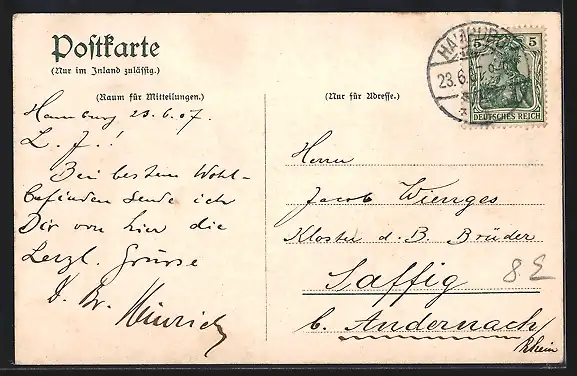 Postkarte
(Nur im Inland zulässig.)
(Raum für Mitteilungen.)
Hamburg 23.6.07.
L. J.!!
Bei bestem Wohl-
befinden sende ich
Dir von hier die
herzl. Grüsse
D. Br. Heinrich
(Nur für Adresse.)
HAMBURG
23.6.07
5 5
DEUTSCHES REICH
Herrn
Jacob Wienges
Kloster d. B. Brüder
Saffig
b. Andernach/
Rhein